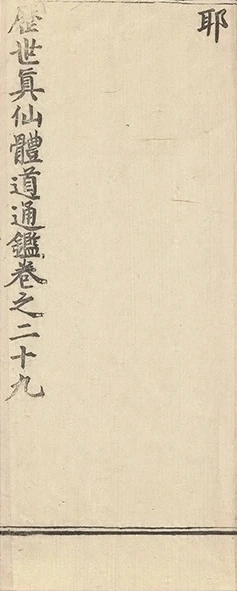 耶
歷世眞仙體道通鑑卷之二十九